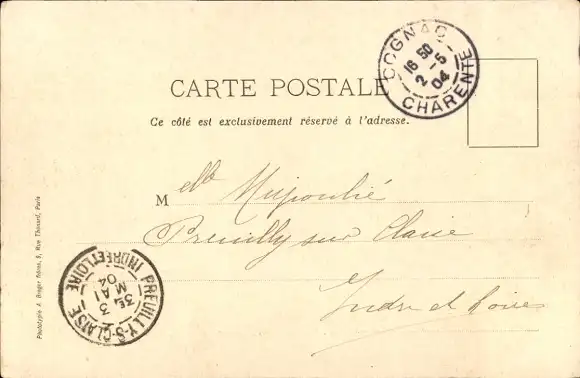 COGNAC
16 50
2 - 5
04
CHARENTE
CARTE POSTALE
Ce côté est exclusivement réservé à l'adresse.
Melle
Preuilly sur Claise
Indre et Loire
PREUILLY-S-CLAISE
3 MAI
04
INDRE ET LOIRE
Phototypie A. Berger frères, 9, Rue Thénard, Paris